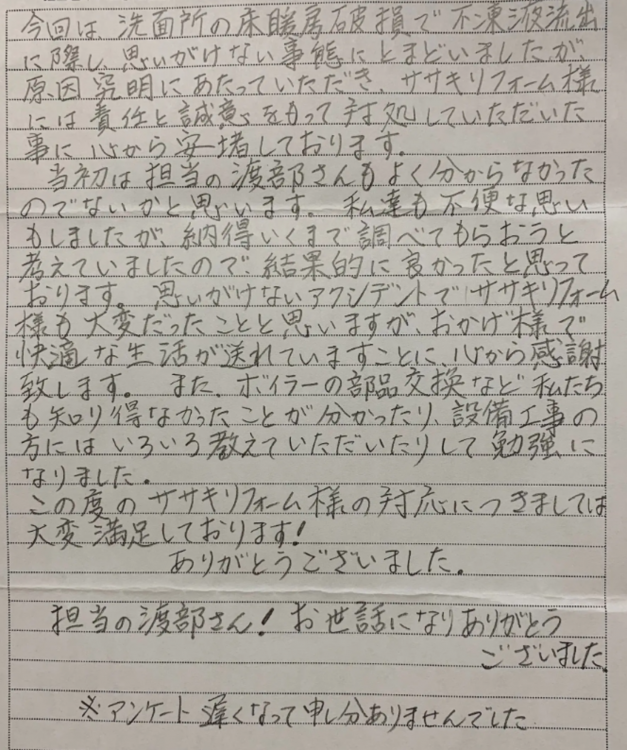 今回は、洗面所の床暖房破損で不凍液流出
に際し、思いがけない事態にとまどいましたが、
原因究明にあたっていただき、ササキリフォーム様
には責任と誠意をもって対処していただいた
事に心から安堵しております。
当初は担当の渡部さんもよく分からなかった
のでないかと思います。私達も不便な思い
もしましたが、納得いくまで調べてもらおうと
考えていましたので、結果的に良かったと思って
おります。思いがけないアクシデントでササキリフォーム
様も大変だったことと思いますが、おかげ様で
快適な生活が送れていますことに、心から感謝
致します。また、ボイラーの部品交換など私たち
も知り得なかったことが分かったり、設備工事の
方にはいろいろ教えていただいたりして勉強に
なりました。
この度のササキリフォーム様の対応につきましては
大変満足しております!
ありがとうございました。
担当の渡部さん!お世話になりありがとう
ございました。
※アンケート遅くなって申し分ありませんでした